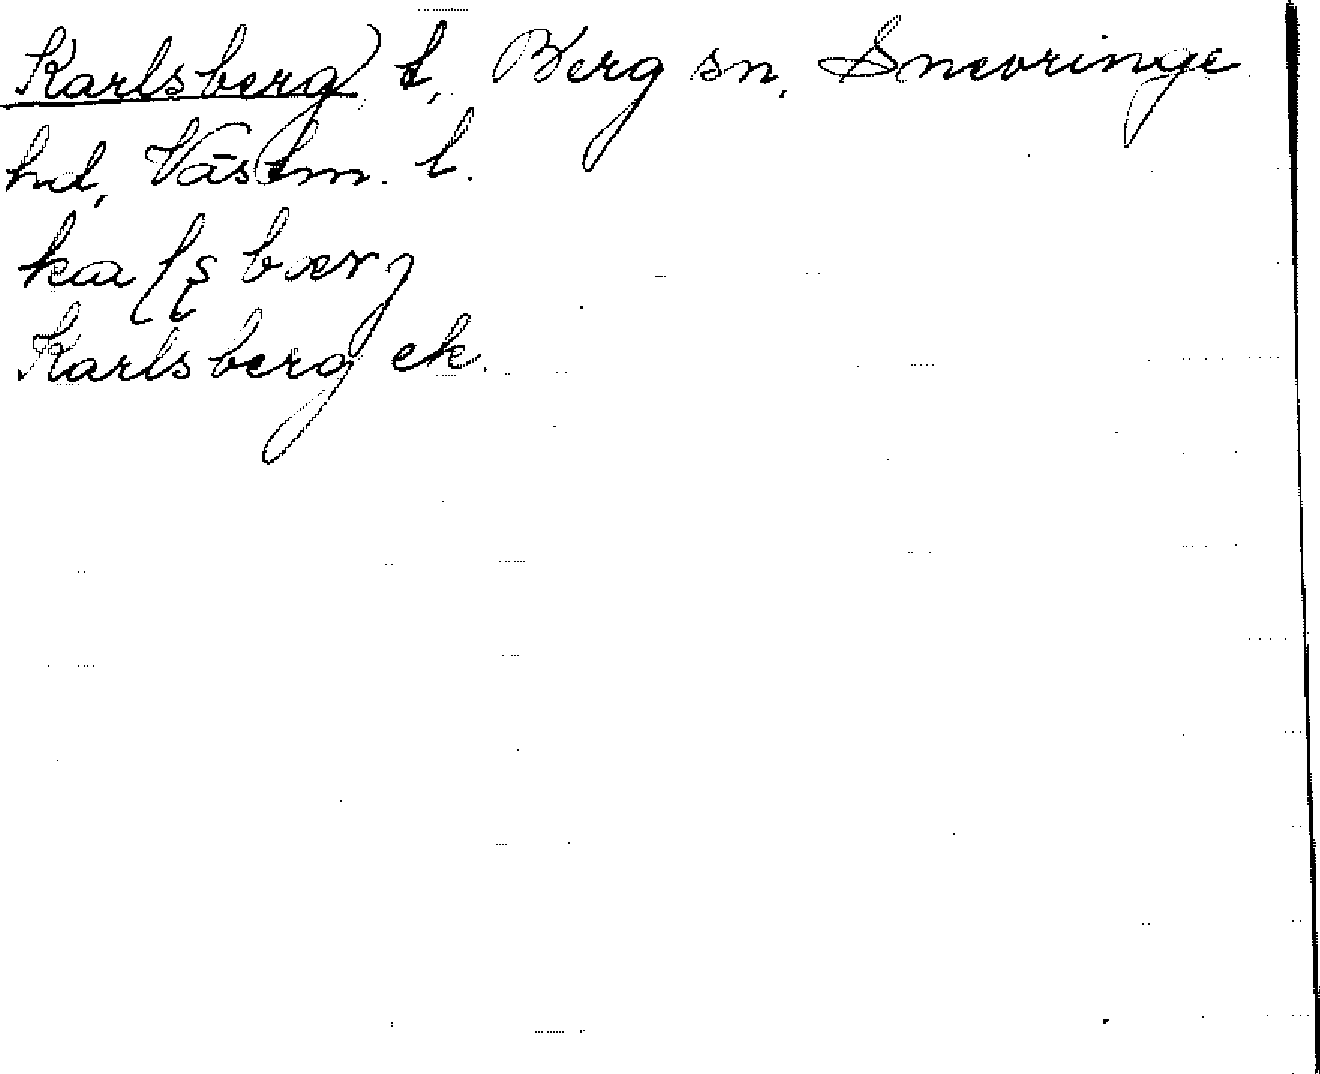 Karlsberg) t, Berg sn, Snevringe
hd, Västm. l.
kaɭʂbærj
Karlsberg ek.